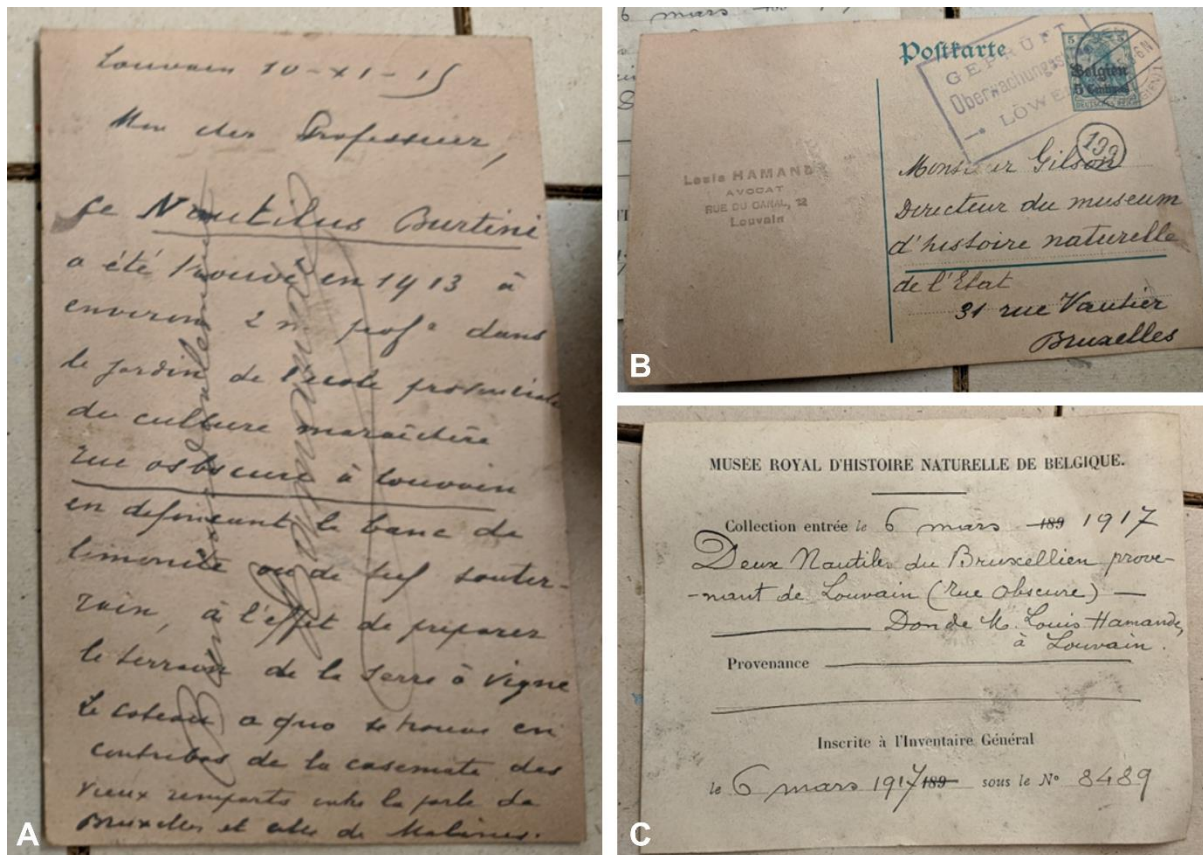 A
Louvain 10-XI-15
Mon cher Professeur,
Le Nautilus Burtini
a été trouvé en 1913 à
environ 2 m profr dans
le jardin de l'école provinciale
de culture maraîchère
rue osbscure à Louvain
en défonçant le banc de
limonite ou de tuf souter-
rain, à l'effet de préparer
le terrain de la serre à vigne
Le coteau a quo se trouve en
contrebas de la casemate des
vieux remparts entre la porte de
Bruxelles et celle de Malines.
Hamande
B
6 mars
Postkarte
GEPRÜFT
Überwachungsst
LÖWEN
5
Belgien
5 Centimes
DEUTSCHES REICH
139
Louis HAMANDE
AVOCAT
RUE DU CANAL, 12
Louvain
Monsieur Gilson
Directeur du museum
d'histoire naturelle
de l'Etat
31 rue Vautier
Bruxelles
C
MUSÉE ROYAL D'HISTOIRE NATURELLE DE BELGIQUE.
Collection entrée le 6 mars 189 1917
Deux Nautiles du Bruxellien prove-
-nant de Louvain (rue Obscure) —
Don de M. Louis Hamande,
à Louvain.
Provenance
Inscrite à l'Inventaire Général
le 6 mars 1917 189 sous le N° 8489